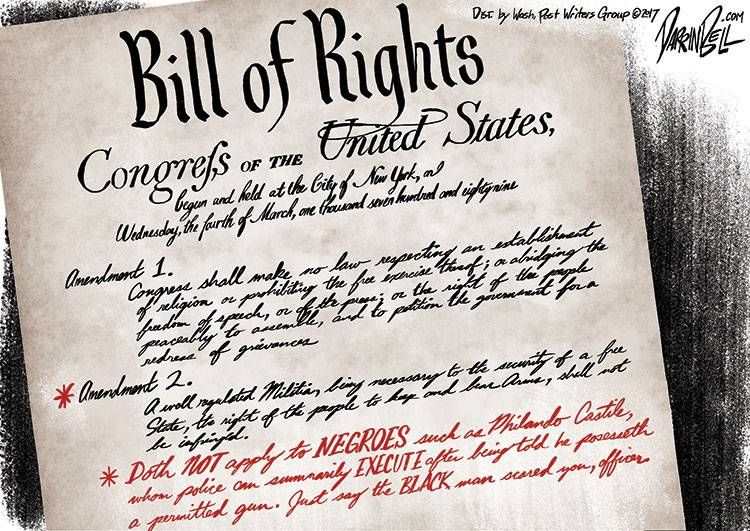 Dist. by Wash. Post Writers Group © 2017
DARRINBELL.com
Bill of Rights
Congreſs OF THE United States,
begun and held at the City of New York, on
Wednesday, the fourth of March, one thousand seven hundred and eighty nine
Amendment 1.
Congress shall make no law respecting an establishment
of religion or prohibiting the free exercise thereof; or abridging the
freedom of speech, or of the press; or the right of the people
peaceably to assemble, and to petition the government for a
redress of grievances
* Amendment 2.
A well regulated Militia, being necessary to the security of a free
State, the right of the people to keep and bear Arms, shall not
be infringed.
* Doth NOT apply to NEGROES such as Philando Castile,
whom police can summarily EXECUTE after being told he posesseth
a permitted gun. Just say the BLACK man scared you, officer